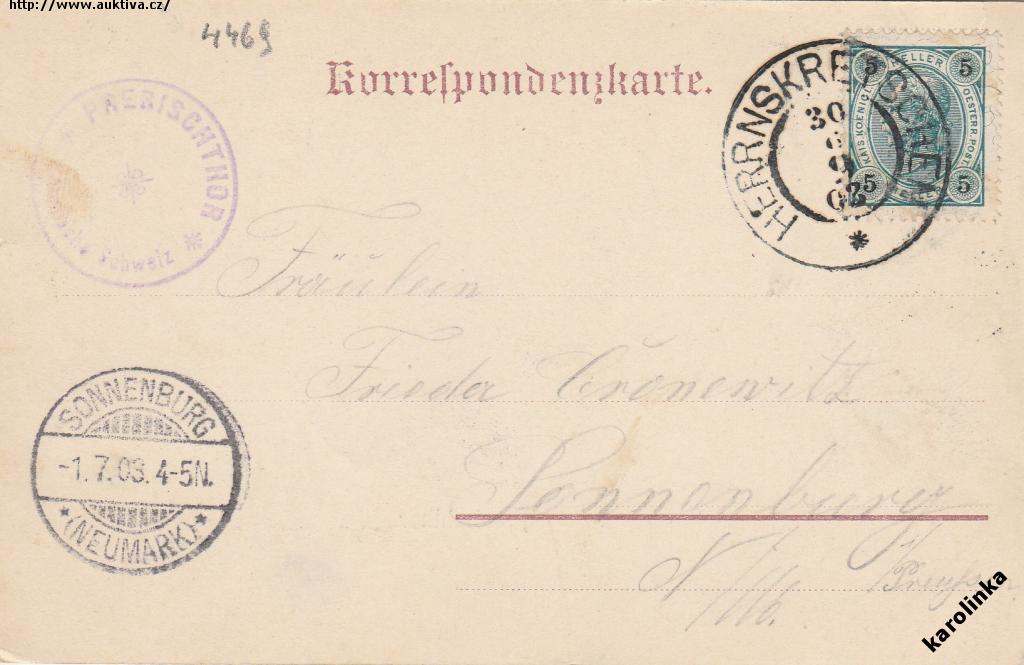 http://www.auktiva.cz/
4469
Korrespondenzkarte.
PREBISCHTHOR
Schweiz
HERRNSKRETSCHEN
30
6
5 HELLER 5
KAIS. KOENIGL. OESTERR. POST.
5 5
Fräulein
Frieda Cronewitz
Sonnenburg
SONNENBURG
-1.7.03. 4-5N.
*(NEUMARK)*
N/M. Preußen
karolinka